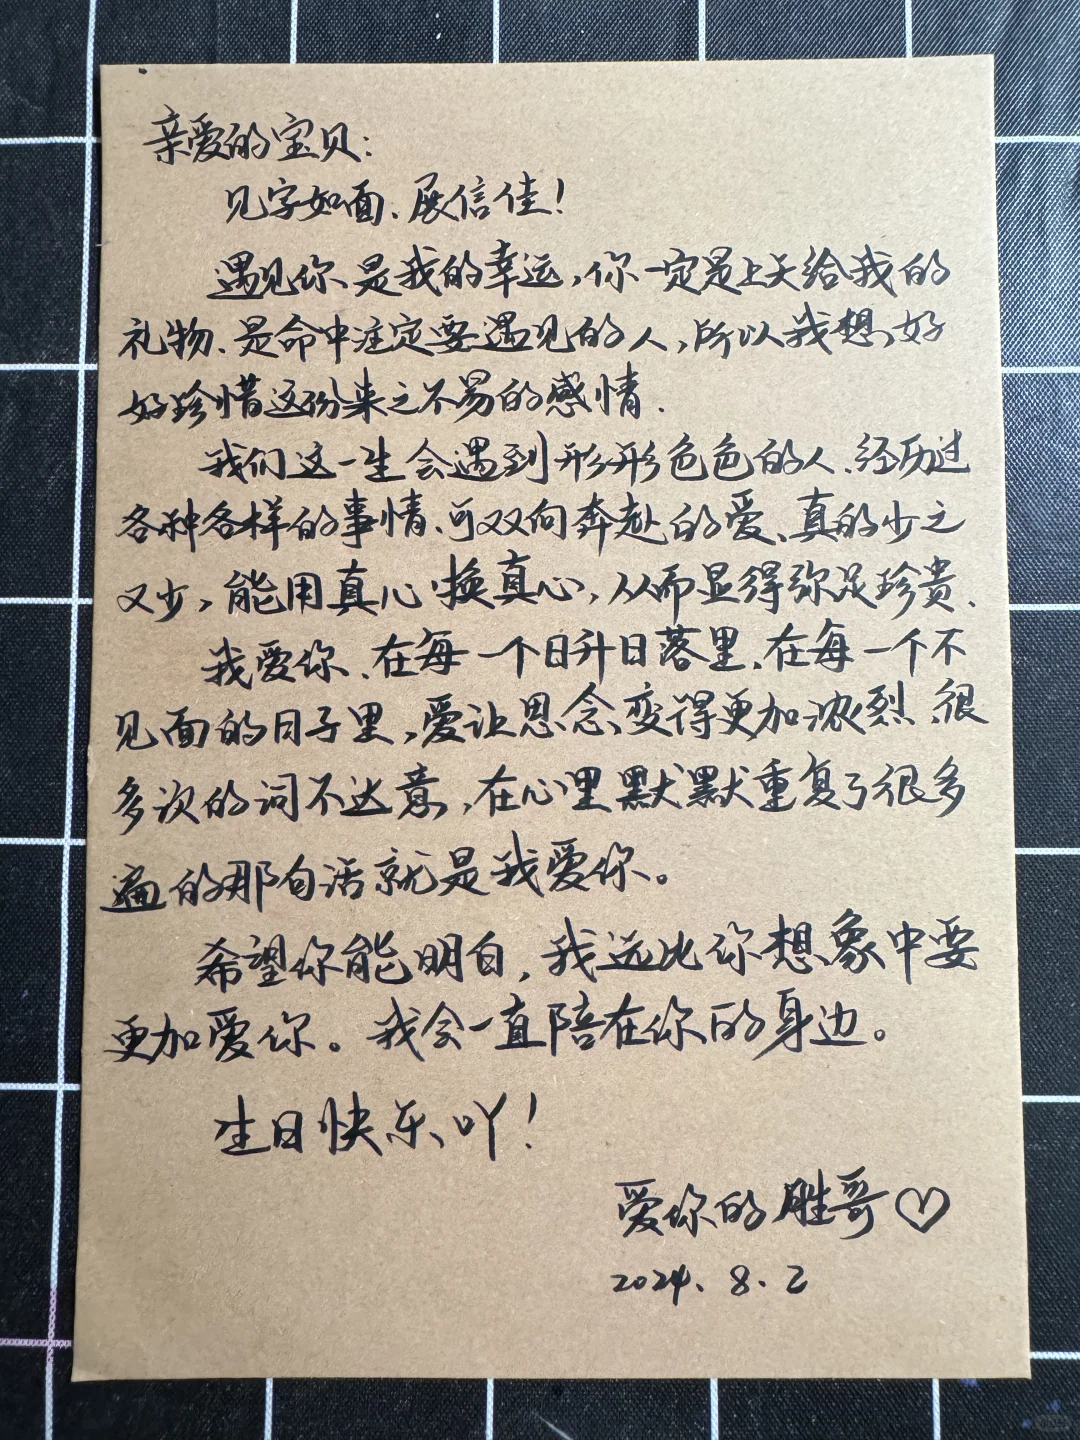 亲爱的宝贝:
见字如面、展信佳!
遇见你、是我的幸运,你一定是上天给我的
礼物、是命中注定要遇见的人,所以我想好
好珍惜这份来之不易的感情.
我们这一生会遇到形形色色的人、经历过
各种各样的事情、可双向奔赴的爱、真的少之
又少,能用真心换真心,从而显得弥足珍贵、
我爱你、在每一个日升日落里、在每一个不
见面的日子里,爱让思念变得更加浓烈、很
多次的词不达意,在心里默默重复了很多
遍的那句话就是我爱你。
希望你能明白,我远比你想象中要
更加爱你。我会一直陪在你的身边。
生日快乐吖!
爱你的胜哥♡
2024.8.2